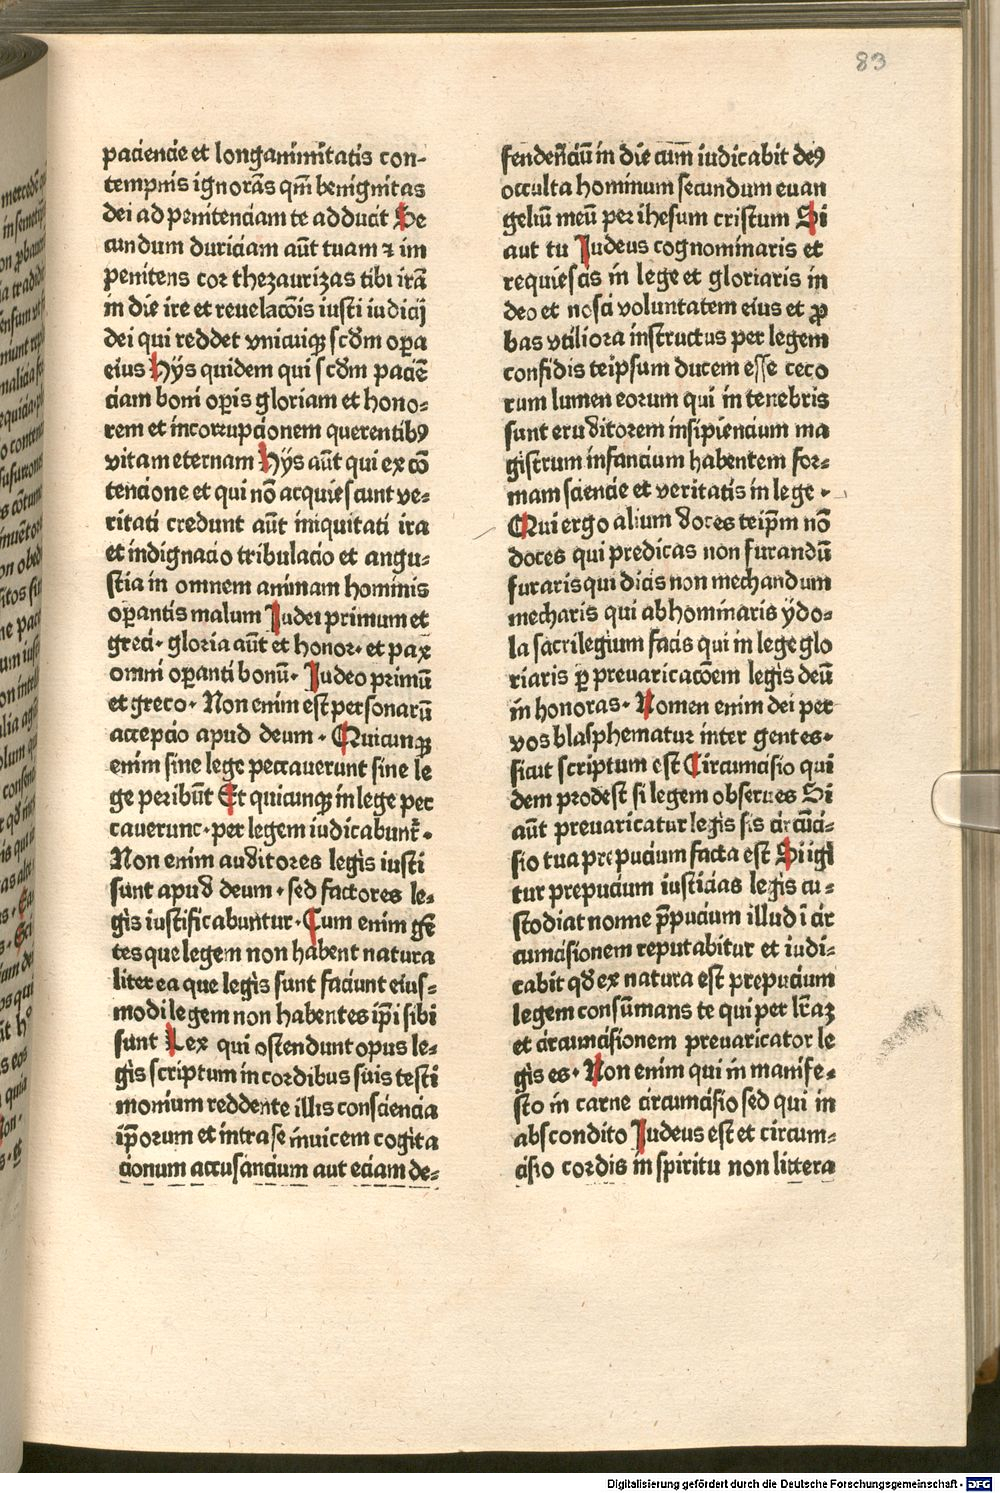 83
paciencie et longanimitatis con-
tempnis ignorās qm̄ benignitas
dei ad penitenciam te adducit Se
cundum duriciam aūt tuam ⁊ im
penitens cor thezaurizas tibi irā
in die ire et reuelacōis iusti iudicij
dei qui reddet vnicuiqꝫ scdm oꝑa
eius Hijs quidem qui scdm paciē
ciam boni oꝑis gloriam et hono⸗
rem et incorrupcionem querentibꝰ
vitam eternam Hijs aūt qui ex cō
tencione et qui nō acquiescunt ve⸗
ritati credunt aūt iniquitati ira
et indignacio tribulacio et angu⸗
stia in omnem animam hominis
oꝑantis malum Iudei primum et
greci· gloria aūt et honor· et pax
omni oꝑanti bonū· Iudeo primū
et greco· Non enim est personarū
accepcio apud deum · Quicunqꝫ
enim sine lege peccauerunt sine le
ge peribūt Et quicunqꝫ in lege pec
cauerunt·per legem iudicabunt̄·
Non enim auditores legis iusti
sunt apud deum · sed factores le⸗
gis iustificabuntur· Cum enim gē
tes que legem non habent natura
liter ea que legis sunt faciunt eius⸗
modi legem non habentes ip̄i sibi
sunt Lex qui ostendunt opus le⸗
gis scriptum in cordibus suis testi
monium reddente illis consciencia
ip̄orum et intra se inuicem cogita
cionum accusancium aut eciam de⸗
fendenciū in die cum iudicabit deꝰ
occulta hominum secundum euan
geliū meū per ihesum cristum Si
aut tu Iudeus cognominaris et
requiescis in lege et gloriaris in
deo et nosci voluntatem eius et ꝓ
bas vtiliora instructus per legem
confidis teipsum ducem esse ceco
rum lumen eorum qui in tenebris
sunt eruditorem insipiencium ma
gistrum infancium habentem for⸗
mam sciencie et veritatis in lege ·
Qui ergo alium doces teip̄m nō
doces qui predicas non furandū
furaris qui dicis non mechandum
mecharis qui abhominaris ydo⸗
la sacrilegium facis qui in lege glo
riaris ꝑ preuaricacōem legis deū
in honoras· Nomen enim dei per
vos blasphematur inter gentes·
sicut scriptum est Circumcisio qui
dem prodest si legem obserues Si
aūt preuaricatur legis sis circūci⸗
sio tua prepucium facta est Si igi
tur prepucium iusticias legis cu⸗
stodiat nonne p̄pucium illud ī cir
cumcisionem reputabitur et iudi⸗
cabit qd ex natura est prepucium
legem consūmans te qui per lr̄aꝫ
et circumcisionem preuaricator le
gis es· Non enim qui in manife⸗
sto in carne circumcisio sed qui in
abscondito Iudeus est et circum⸗
cisio cordis in spiritu non littera
Digitalisierung gefördert durch die Deutsche Forschungsgemeinschaft - DFG